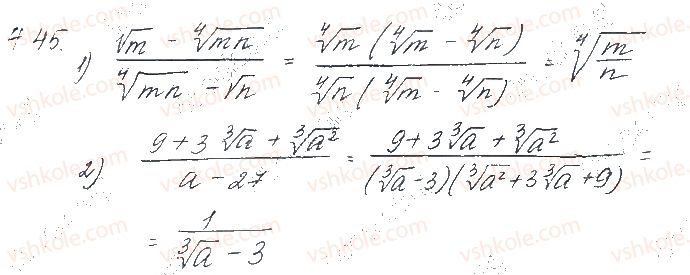 7.45.
1) \frac{\sqrt{m} - \sqrt[4]{mn}}{\sqrt[4]{mn} - \sqrt{n}} = \frac{\sqrt[4]{m}(\sqrt[4]{m} - \sqrt[4]{n})}{\sqrt[4]{n}(\sqrt[4]{m} - \sqrt[4]{n})} = \sqrt[4]{\frac{m}{n}}
2) \frac{9 + 3\sqrt[3]{a} + \sqrt[3]{a^2}}{a - 27} = \frac{9 + 3\sqrt[3]{a} + \sqrt[3]{a^2}}{(\sqrt[3]{a} - 3)(\sqrt[3]{a^2} + 3\sqrt[3]{a} + 9)} =
= \frac{1}{\sqrt[3]{a} - 3}
vshkole.com